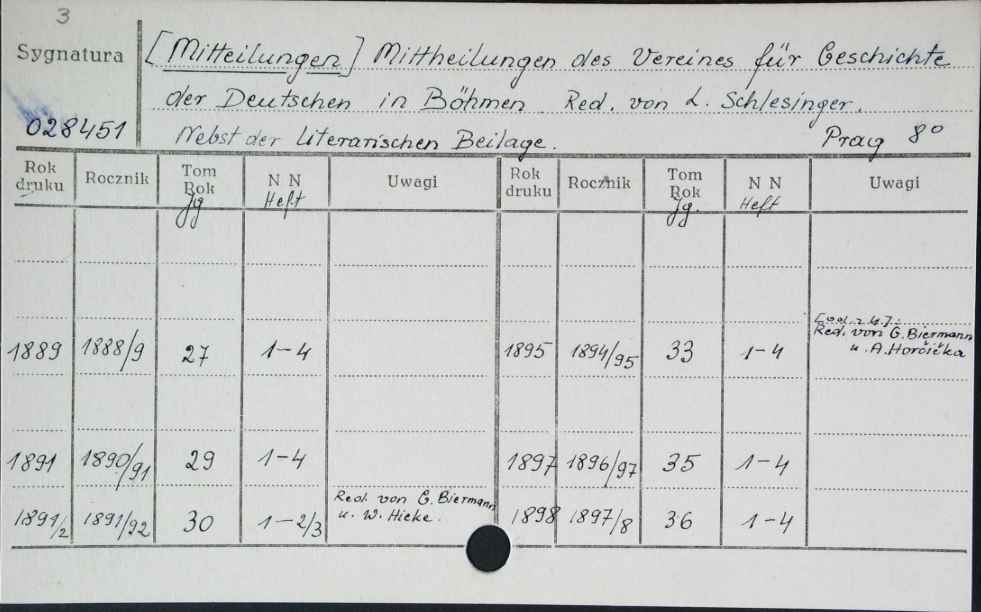 3
Sygnatura
028451
[Mitteilungen] Mittheilungen des Vereines für Geschichte
der Deutschen in Böhmen. Red. von L. Schlesinger.
Nebst der Literarischen Beilage. Prag 8°
Rok druku Rocznik Tom Rok Jg N N Heft Uwagi Rok druku Rocznik Tom Rok Jg. N N Heft Uwagi
1889 1888/9 27 1-4 1895 1894/95 33 1-4 Red. von G. Biermann
u. A. Horčička
1891 1890/91 29 1-4 1897 1896/97 35 1-4
1891/2 1891/92 30 1-2/3 Red. von G. Biermann
u. W. Hieke. 1898 1897/8 36 1-4